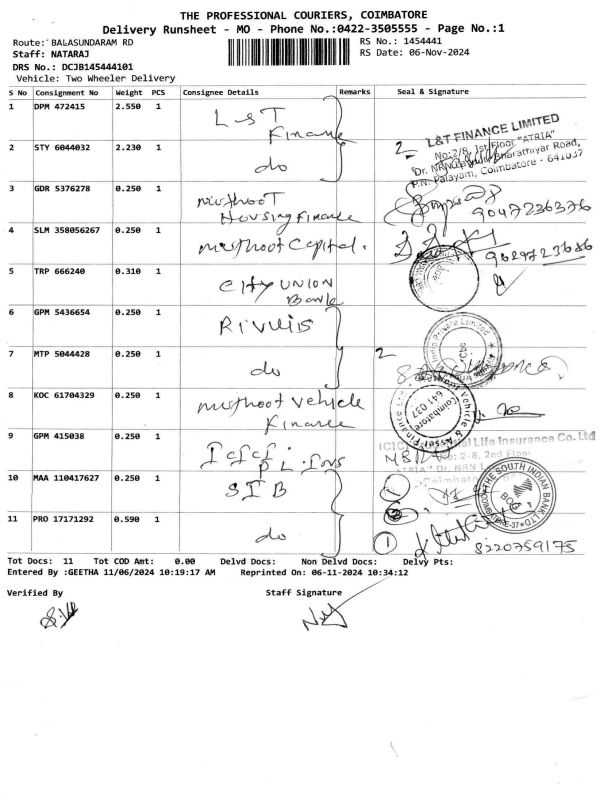 THE PROFESSIONAL COURIERS, COIMBATORE
Delivery Runsheet - MO - Phone No.:0422-3505555 - Page No.:1
Route: BALASUNDARAM RD
RS No.: 1454441
Staff: NATARAJ
RS Date: 06-Nov-2024
DRS No.: DCJB145444101
Vehicle: Two Wheeler Delivery
S No Consignment No Weight PCS Consignee Details Remarks Seal & Signature
1 DPM 472415 2.550 1 L & T
Finance
L&T FINANCE LIMITED
No:2/8, 1st Floor "ATRIA"
Bharathiyar Road,
P.N. Palayam, Coimbatore - 641037
2 STY 6044032 2.230 1 do 2
3 GDR 5376278 0.250 1 muthooT
Housing Finance
9047236376
4 SLM 358056267 0.250 1 muthoot Capital.
9629723686
5 TRP 666240 0.310 1 CITY UNION
Bank
6 GPM 5436654 0.250 1 Rivulis
7 MTP 5044428 0.250 1 do 2
8 KOC 61704329 0.250 1 muthoot vehicle
Finance
Vehicle & Asset Finance Ltd
Coimbatore
641 037
9 GPM 415038 0.250 1 Icici
PL.
ICICI Life Insurance Co. Ltd
No: 2-8, 2nd Floor
Dr. NRN
10 MAA 110417627 0.250 1 SIB
THE SOUTH INDIAN BANK LTD
COIMBATORE-37
11 PRO 17171292 0.590 1 do 1
8220759175
Tot Docs: 11 Tot COD Amt: 0.00 Delvd Docs: Non Delvd Docs: Delvy Pts:
Entered By :GEETHA 11/06/2024 10:19:17 AM Reprinted On: 06-11-2024 10:34:12
Verified By Staff Signature